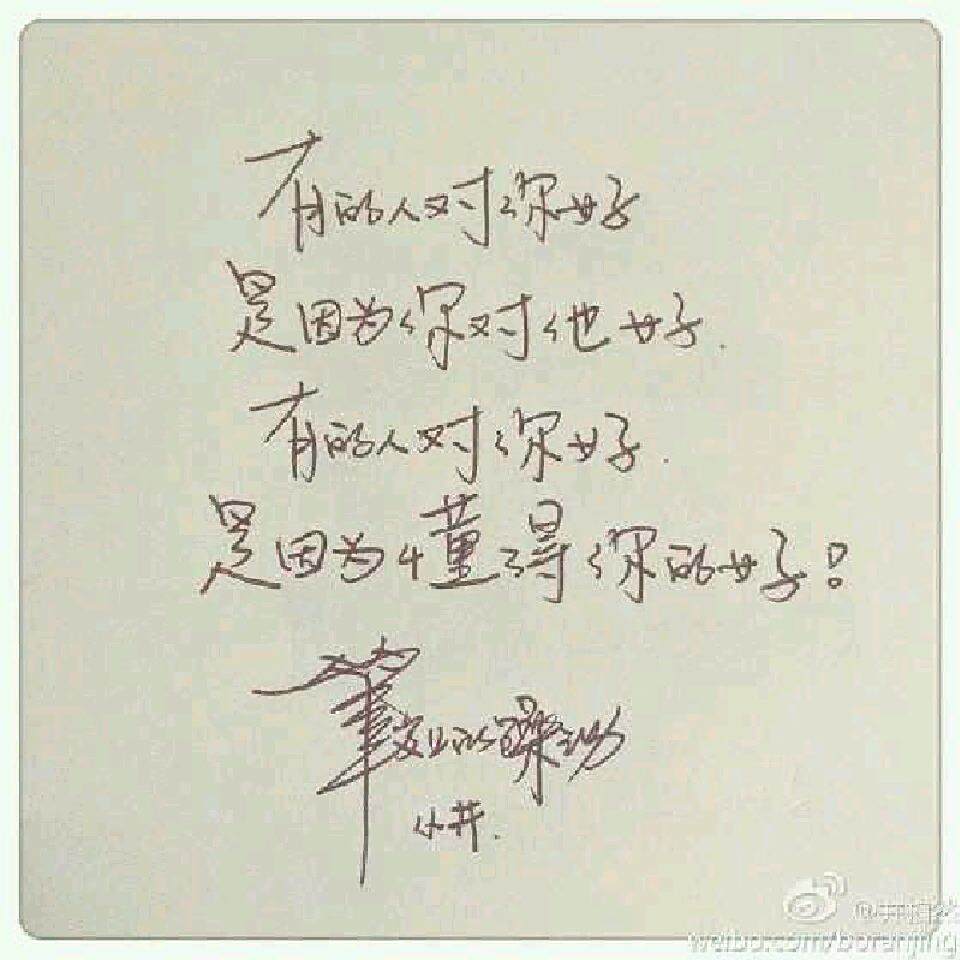 有的人对你好
是因为你对他好.
有的人对你好.
是因为懂得你的好!
笔尖上的躁动
小井.
weibo.com/boranjing